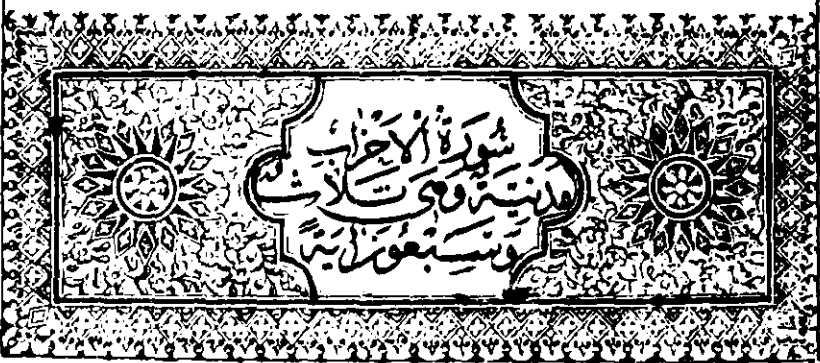 سُورَةُ الْاَحْزَابِ
مَدَنِيَّةٌ وَهِىَ ثَلَاثٌ
وَسَبْعُونَ اٰيَةً